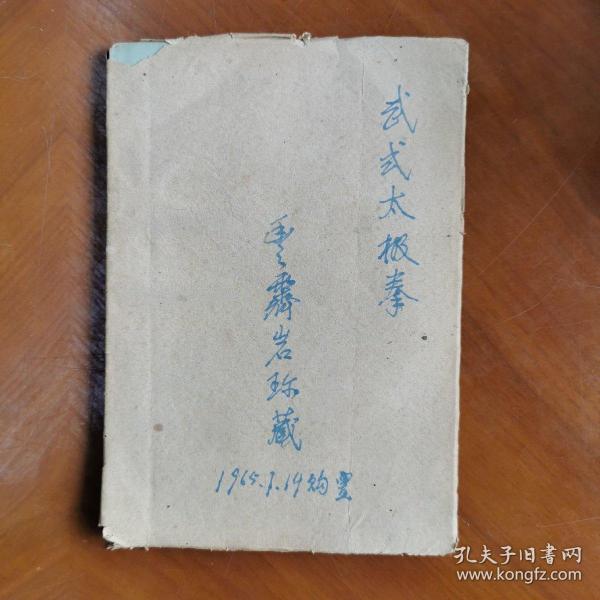 武式太极拳
霁岩珍藏
1965.7.19购置
孔夫子旧书网
www.kongfz.com